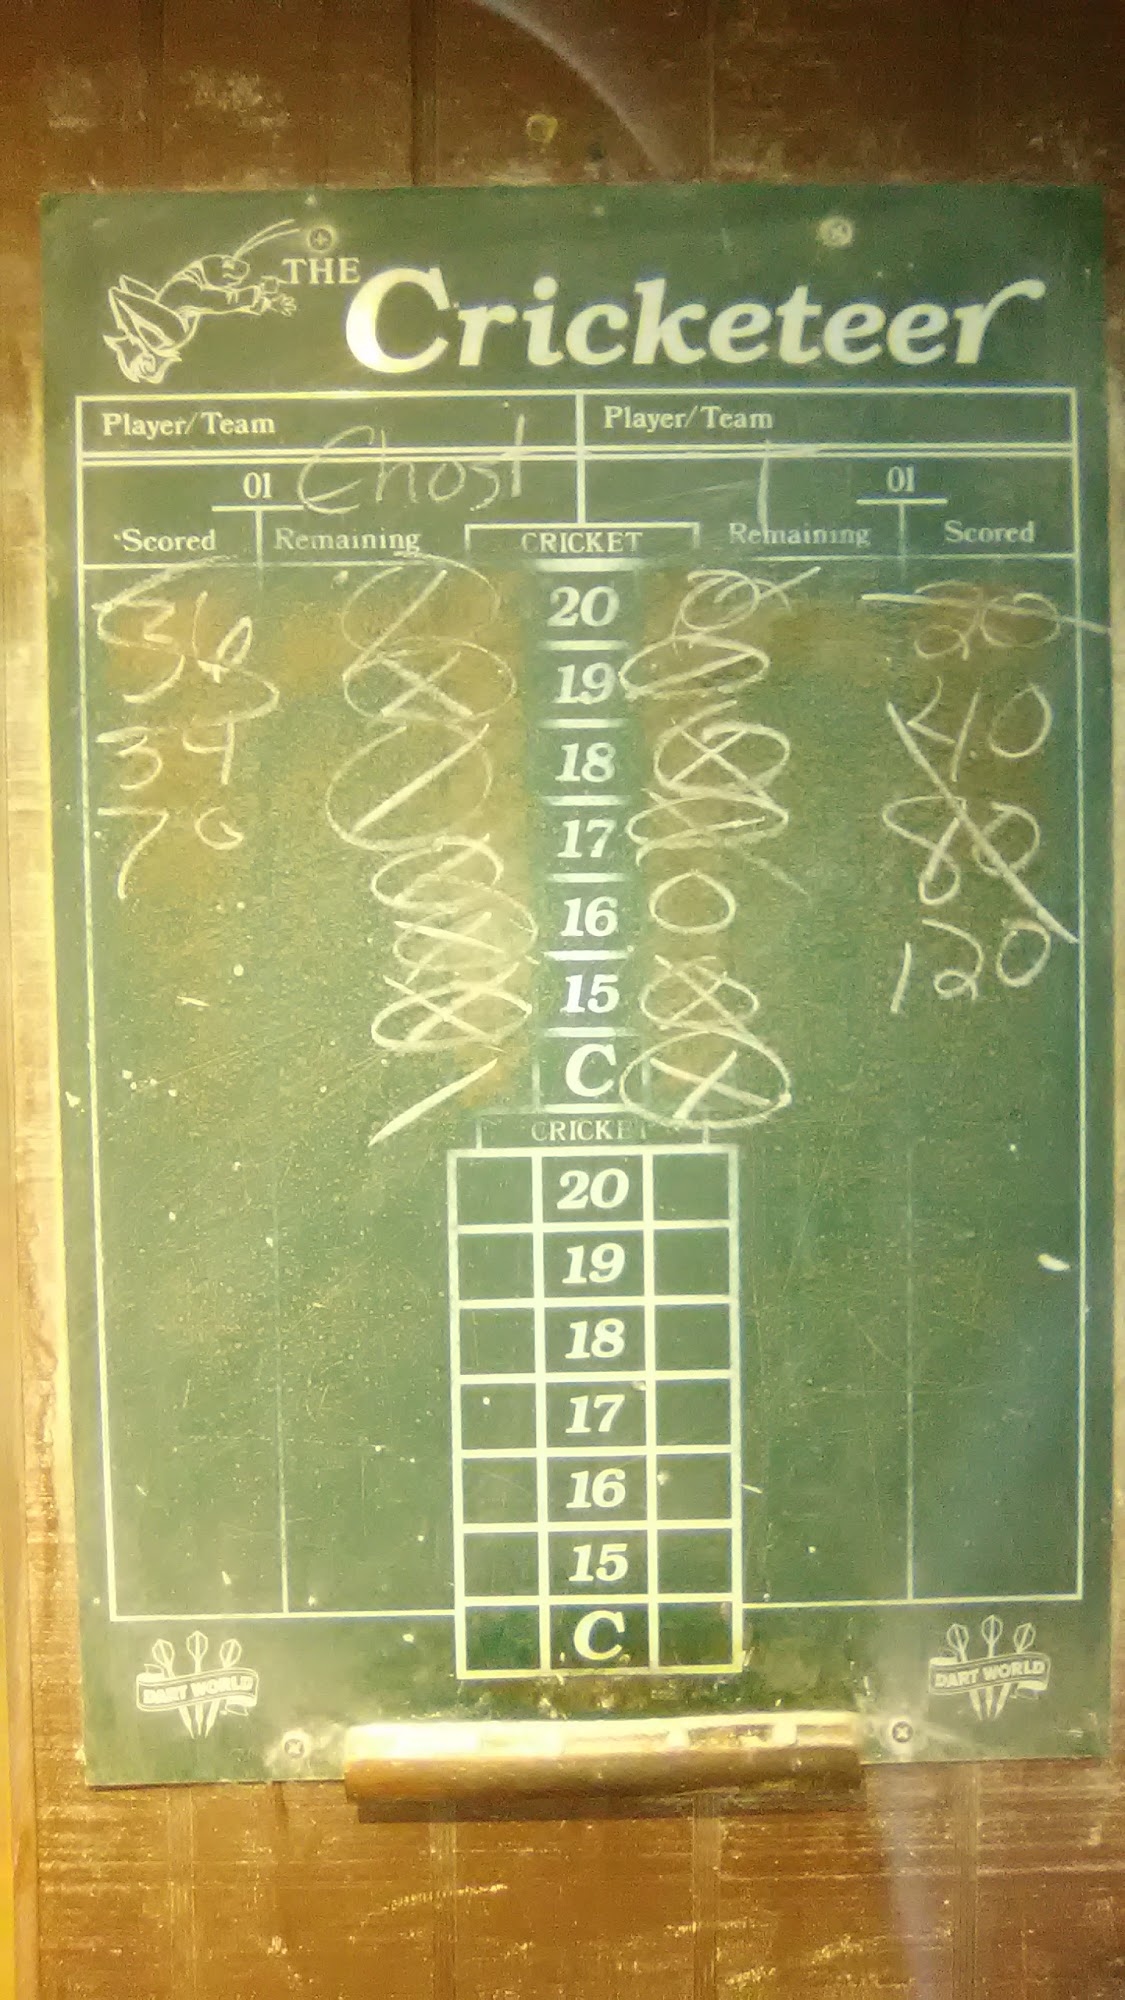 THE Cricketeer
Player/Team Player/Team
01 Ghost 01
Scored Remaining CRICKET Remaining Scored
20 20
36 19 40
34 18 80
70 17
16 120
15
C
CRICKET
20
19
18
17
16
15
C
DART WORLD DART WORLD